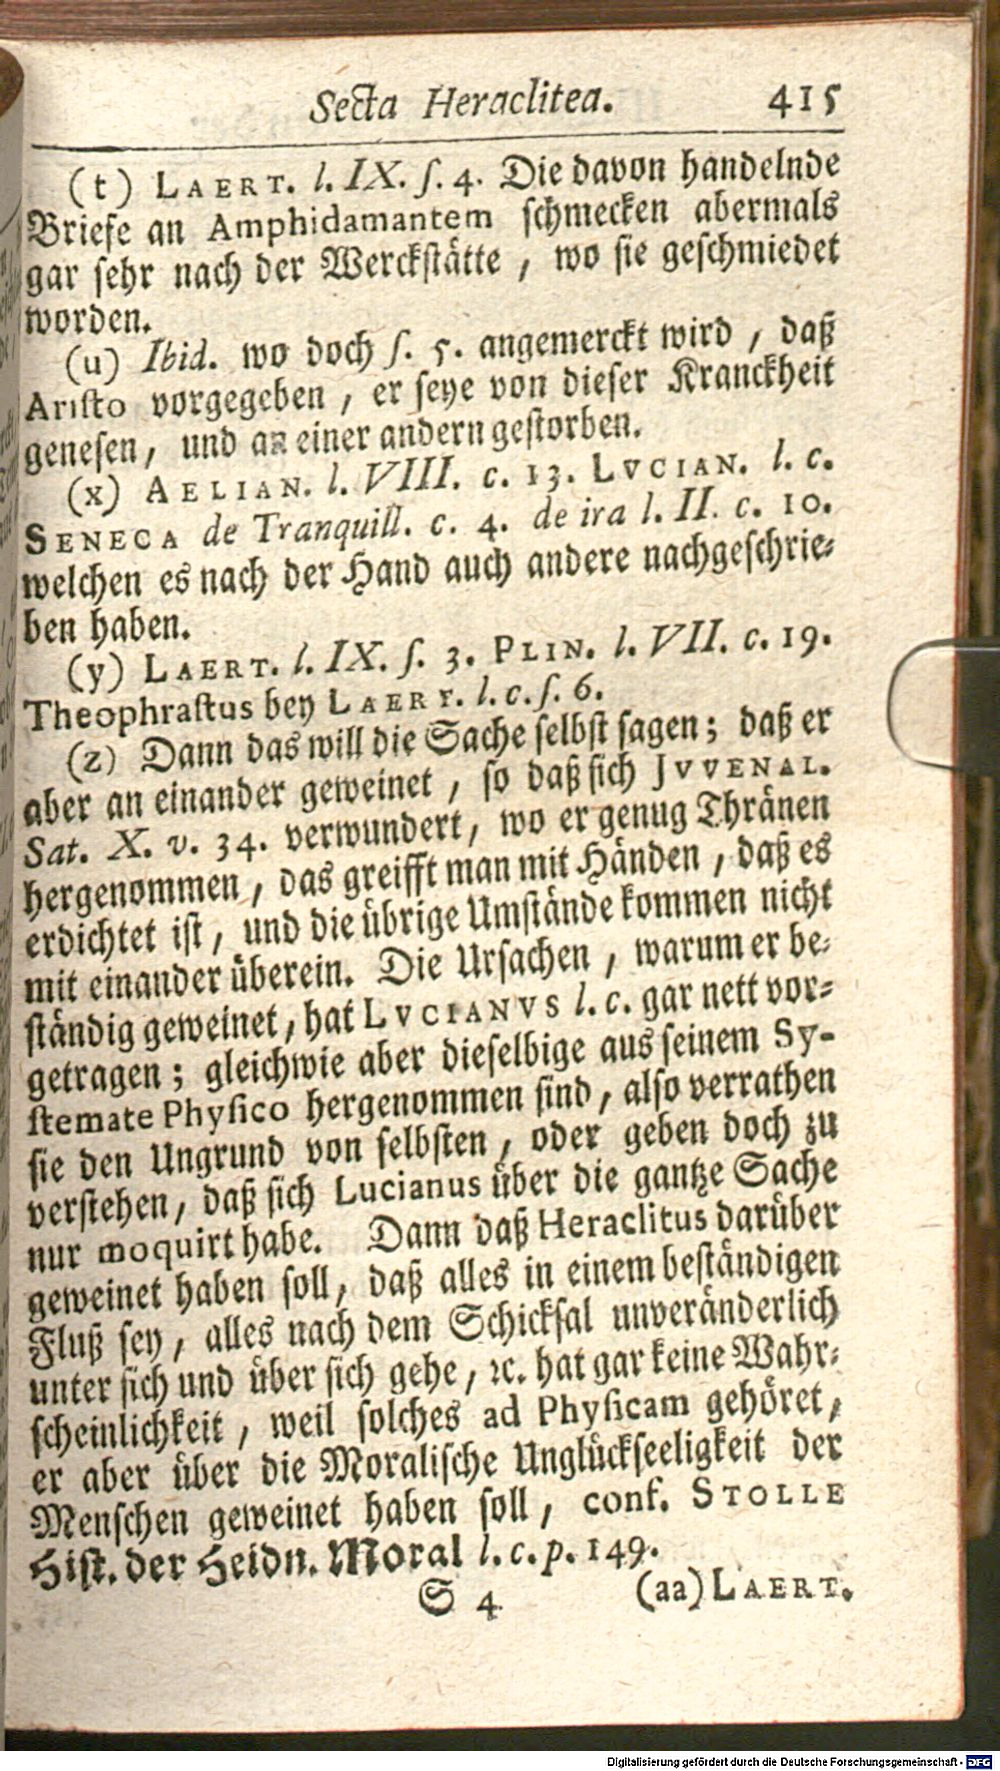 Secta Heraclitea. 415
(t) LAERT. l. IX. ſ. 4. Die davon handelnde
Briefe an Amphidamantem ſchmecken abermals
gar ſehr nach der Werckſtätte, wo ſie geſchmiedet
worden.
(u) Ibid. wo doch ſ. 5. angemerckt wird, daß
Ariſto vorgegeben, er ſeye von dieſer Kranckheit
geneſen, und an einer andern geſtorben.
(x) AELIAN. l. VIII. c. 13. LVCIAN. l. c.
SENECA de Tranquill. c. 4. de ira l. II. c. 10.
welchen es nach der Hand auch andere nachgeſchrie-
ben haben.
(y) LAERT. l. IX. ſ. 3. PLIN. l. VII. c. 19.
Theophraſtus bey LAERT. l. c. ſ. 6.
(z) Dann das will die Sache ſelbſt ſagen; daß er
aber an einander geweinet, ſo daß ſich JVVENAL.
Sat. X. v. 34. verwundert, wo er genug Thränen
hergenommen, das greifft man mit Händen, daß es
erdichtet iſt, und die übrige Umſtände kommen nicht
mit einander überein. Die Urſachen, warum er be-
ſtändig geweinet, hat LVCIANVS l. c. gar nett vor-
getragen; gleichwie aber dieſelbige aus ſeinem Sy-
ſtemate Phyſico hergenommen ſind, alſo verrathen
ſie den Ungrund von ſelbſten, oder geben doch zu
verſtehen, daß ſich Lucianus über die gantze Sache
nur moquirt habe. Dann daß Heraclitus darüber
geweinet haben ſoll, daß alles in einem beſtändigen
Fluß ſey, alles nach dem Schickſal unveränderlich
unter ſich und über ſich gehe, ꝛc. hat gar keine Wahr-
ſcheinlichkeit, weil ſolches ad Phyſicam gehöret,
er aber über die Moraliſche Unglückſeeligkeit der
Menſchen geweinet haben ſoll, conf. STOLLE
Hiſt. der Heidn. Moral l. c. p. 149.
S 4 (aa) LAERT.
Digitalisierung gefördert durch die Deutsche Forschungsgemeinschaft - DFG